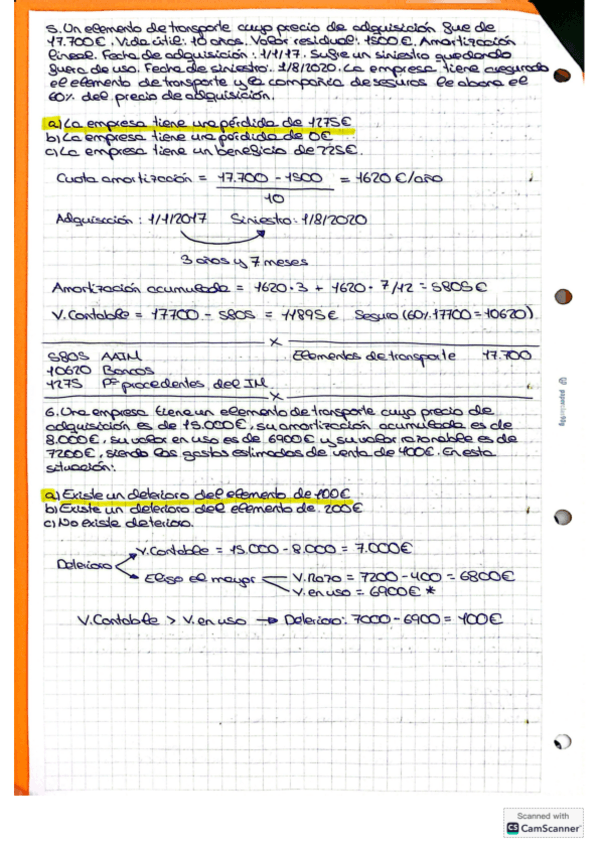 5. Un elemento de transporte cuyo precio de adquisición fue de
17.700€. Vida útil: 10 años. Valor residual: 1500€. Amortización
lineal. Fecha de adquisición: 1/1/17. Sufre un siniestro quedando
fuera de uso. Fecha de siniestro: 1/8/2020. La empresa tiene asegurado
el elemento de transporte y la compañía de seguros le abona el
60% del precio de adquisición.
a) La empresa tiene una pérdida de 1275€
b) La empresa tiene una pérdida de 0€
c) La empresa tiene un beneficio de 225€.
Cuota amortización = 17.700 - 1500 = 1620 €/año
10
Adquisición: 1/1/2017 Siniestro: 1/8/2020
3 años y 7 meses
Amortización acumulada = 1620·3 + 1620· 7/12 = 5805€
V. Contable = 17700 - 5805 = 11895€ Seguro (60%17700 = 10620)
x
5805 AAIM Elementos de transporte 17.700
10620 Bancos
1275 Pº procedentes del IM
x
6. Una empresa tiene un elemento de transporte cuyo precio de
adquisición es de 15.000€, su amortización acumulada es de
8.000€, su valor en uso es de 6900€ y su valor razonable es de
7200€, siendo los gastos estimados de venta de 400€. En esta
situación:
a) Existe un deterioro del elemento de 100€
b) Existe un deterioro del elemento de 200€
c) No existe deterioro.
V. Contable = 15.000 - 8.000 = 7.000€
Deterioro
Eliso el mayor V. Razo = 7200 - 400 = 6800€
V. en uso = 6900€ *
V. Contable > V. en uso → Deterioro: 7000 - 6900 = 100€
Scanned with
CS CamScanner